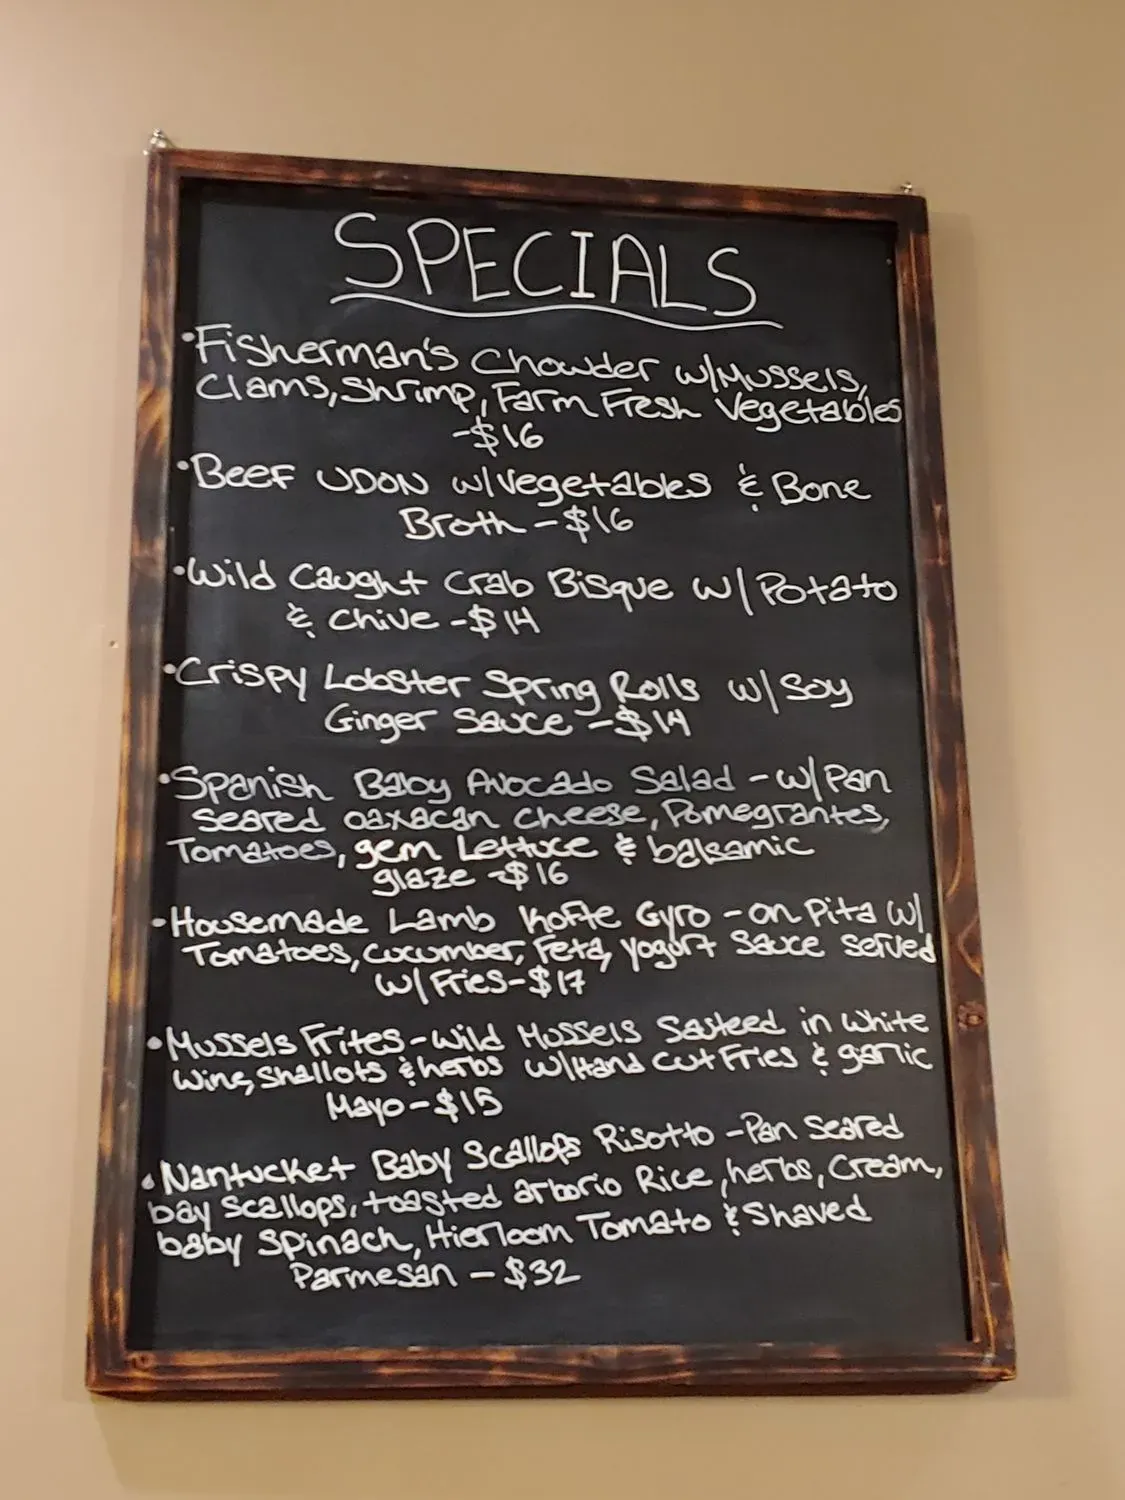 SPECIALS
•Fisherman's Chowder w/Mussels,
Clams, Shrimp, Farm Fresh Vegetables
-$16
•Beef UDON w/vegetables & Bone
Broth -$16
•Wild Caught Crab Bisque w/Potato
& Chive -$14
•Crispy Lobster Spring Rolls w/ Soy
Ginger Sauce -$14
•Spanish Baby Avocado Salad - w/Pan
Seared Oaxacan Cheese, Pomegrantes,
Tomatoes, gem Lettuce & balsamic
glaze -$16
•Housemade Lamb Kofte Gyro - on Pita w/
Tomatoes, cucumber, Feta, yogurt Sauce served
w/Fries-$17
•Mussels Frites-Wild Mussels Sasteed in white
wine, Shallots & herbs w/Hand Cut Fries & garlic
Mayo-$15
•Nantucket Baby Scallops Risotto -Pan Seared
bay Scallops, toasted arborio Rice, herbs, Cream,
baby Spinach, Hierloom Tomato & Shaved
Parmesan - $32